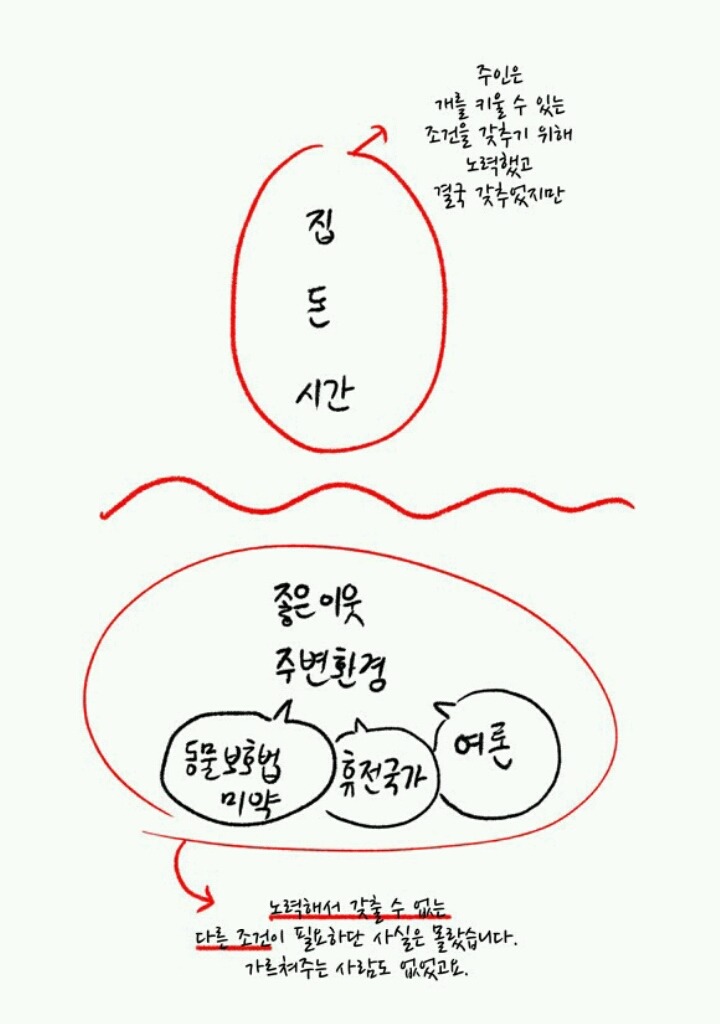 주인은
개를 키울 수 있는
조건을 갖추기 위해
노력했고
결국 갖추었지만
집
돈
시간
좋은이웃
주변환경
동물보호법
미약
휴전국가
여론
노력해서 갖출 수 없는
다른 조건이 필요하단 사실은 몰랐습니다.
가르쳐주는 사람도 없었고요.